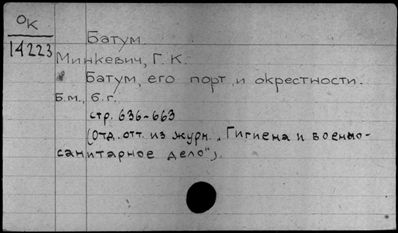 ОК
14223
Батум.
Минкевич, Г. К.
Батум, его порт и окрестности.
Б.м., б.г.
стр. 636-663
(Отд. отт. из журн. „Гигиена и военно-
санитарное дело").